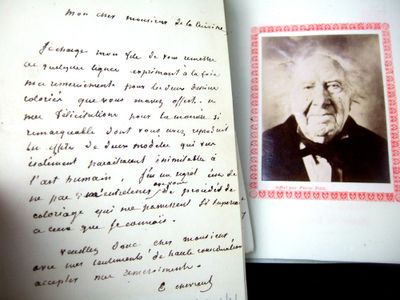 Mon cher monsieur de la
Je charge mon fils de vous remettre
ces quelques lignes exprimant à la fois
mes remerciments pour les deux dessins
coloriés que vous m'avez offert, et
mes félicitations pour la manière si
remarquable dont vous avez reproduit
les effets de deux modèles qui
paraissent inimitable à
l'art humain, J'ai un regret de
ne pas de procédés de
coloriage qui me paraissent si supérieurs
à ceux que je connais.
Veuillez donc, cher monsieur
avec mes sentiments de haute considération
accepter mes remerciments.
E Chevreul
offert par Pierre Petit.